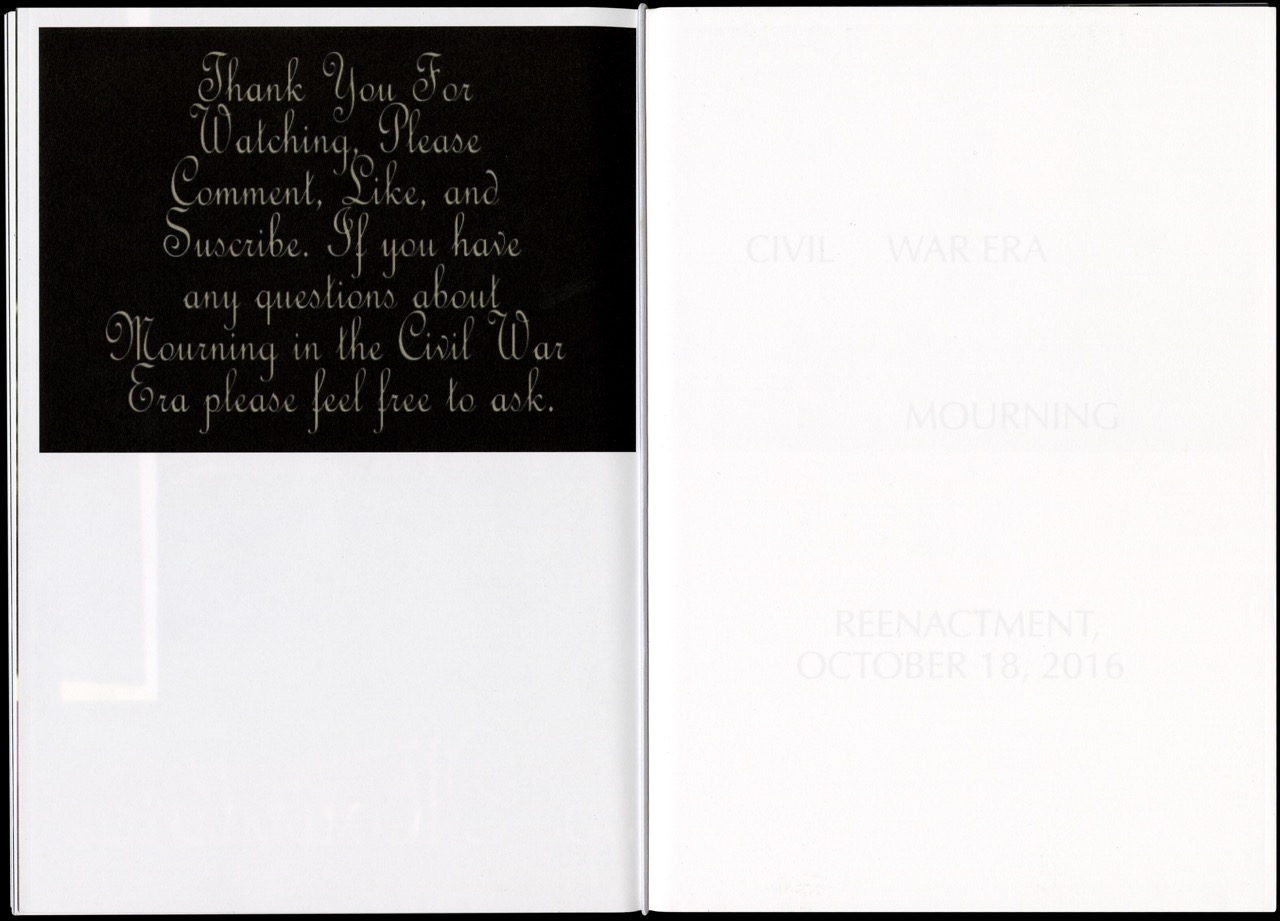 Thank You For
Watching, Please
Comment, Like, and
Suscribe. If you have
any questions about
Mourning in the Civil War
Era please feel free to ask.
CIVIL WAR ERA
MOURNING
REENACTMENT,
OCTOBER 18, 2016